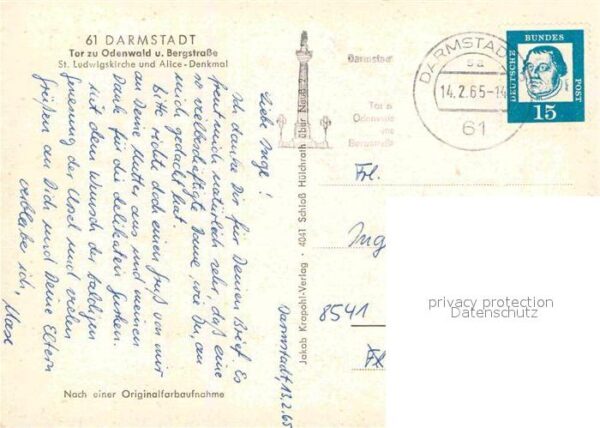 61 DARMSTADT
Tor zu Odenwald u. Bergstraße
St. Ludwigskirche und Alice-Denkmal
Darmstadt, 13.2.65
Liebe Inge!
Ich danke Dir für Deinen Brief. Es
freut mich natürlich sehr, daß eine
so vielbeschäftigte Dame, wie Du, an
mich gedacht hat.
bitte richte doch einen Gruß von mir
an Deine Mutter aus und meinen
Dank für die delikaten Gurken.
mit dem Wunsch der baldigen
Genesung der Insel und vielen
Grüßen an Dich und Deine Eltern
verbleibe ich,
Nach einer Originalfarbaufnahme
Jakob Krapohl-Verlag · 4041 Schloß Hülchrath über Neuss 2
Darmstadt
Tor zu
Odenwald
und
Bergstraße
DARMSTADT
14.2.65-14
61
DEUTSCHE
BUNDES
POST
15
Frl.
Ing
8541
privacy protection
Datenschutz